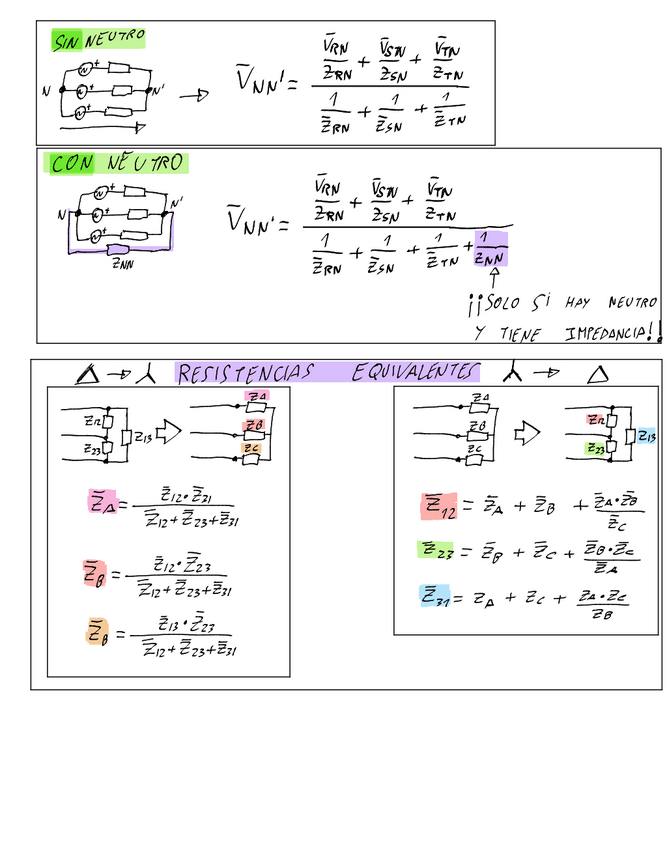 SIN NEUTRO
N + + + N'
V̄NN' = (V̄RN/Z̄RN + V̄SN/Z̄SN + V̄TN/Z̄TN) / (1/Z̄RN + 1/Z̄SN + 1/Z̄TN)
CON NEUTRO
N + + + N'
ZNN
V̄NN' = (V̄RN/Z̄RN + V̄SN/Z̄SN + V̄TN/Z̄TN) / (1/Z̄RN + 1/Z̄SN + 1/Z̄TN + 1/ZNN)
¡¡SOLO SI HAY NEUTRO
Y TIENE IMPEDANCIA!!
Δ → ⅄ RESISTENCIAS EQUIVALENTES ⅄ → Δ
Z12 Z23 Z13 ⇒ ZA ZB ZC
Z̄A = Z̄12·Z̄31 / (Z̄12+Z̄23+Z̄31)
Z̄B = Z̄12·Z̄23 / (Z̄12+Z̄23+Z̄31)
Z̄B = Z̄13·Z̄23 / (Z̄12+Z̄23+Z̄31)
ZA ZB ZC ⇒ Z12 Z23 Z13
Z̄12 = Z̄A + Z̄B + Z̄A·Z̄B / Z̄C
Z̄23 = Z̄B + Z̄C + Z̄B·Z̄C / Z̄A
Z̄31 = ZA + ZC + ZA·ZC / ZB